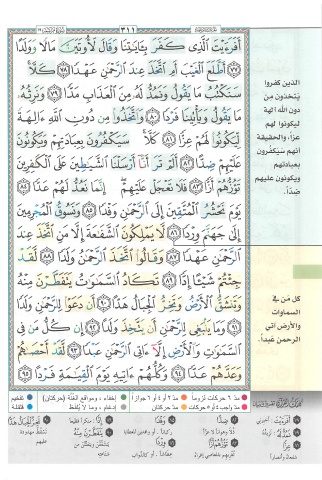 ٣١١
أَفَرَءَيْتَ ٱلَّذِى كَفَرَ بِـَٔايَـٰتِنَا وَقَالَ لَأُوتَيَنَّ مَالًا وَوَلَدًا
٧٧ أَطَّلَعَ ٱلْغَيْبَ أَمِ ٱتَّخَذَ عِندَ ٱلرَّحْمَـٰنِ عَهْدًا ٧٨ كَلَّا
سَنَكْتُبُ مَا يَقُولُ وَنَمُدُّ لَهُۥ مِنَ ٱلْعَذَابِ مَدًّا ٧٩ وَنَرِثُهُۥ
مَا يَقُولُ وَيَأْتِينَا فَرْدًا ٨٠ وَٱتَّخَذُوا۟ مِن دُونِ ٱللَّهِ ءَالِهَةً
لِّيَكُونُوا۟ لَهُمْ عِزًّا ٨١ كَلَّا سَيَكْفُرُونَ بِعِبَادَتِهِمْ وَيَكُونُونَ
عَلَيْهِمْ ضِدًّا ٨٢ أَلَمْ تَرَ أَنَّآ أَرْسَلْنَا ٱلشَّيَـٰطِينَ عَلَى ٱلْكَـٰفِرِينَ
تَؤُزُّهُمْ أَزًّا ٨٣ فَلَا تَعْجَلْ عَلَيْهِمْ إِنَّمَا نَعُدُّ لَهُمْ عَدًّا ٨٤
يَوْمَ نَحْشُرُ ٱلْمُتَّقِينَ إِلَى ٱلرَّحْمَـٰنِ وَفْدًا ٨٥ وَنَسُوقُ ٱلْمُجْرِمِينَ
إِلَىٰ جَهَنَّمَ وِرْدًا ٨٦ لَّا يَمْلِكُونَ ٱلشَّفَـٰعَةَ إِلَّا مَنِ ٱتَّخَذَ عِندَ
ٱلرَّحْمَـٰنِ عَهْدًا ٨٧ وَقَالُوا۟ ٱتَّخَذَ ٱلرَّحْمَـٰنُ وَلَدًا ٨٨ لَّقَدْ
جِئْتُمْ شَيْـًٔا إِدًّا ٨٩ تَكَادُ ٱلسَّمَـٰوَٰتُ يَتَفَطَّرْنَ مِنْهُ
وَتَنشَقُّ ٱلْأَرْضُ وَتَخِرُّ ٱلْجِبَالُ هَدًّا ٩٠ أَن دَعَوْا۟ لِلرَّحْمَـٰنِ وَلَدًا
٩١ وَمَا يَنۢبَغِى لِلرَّحْمَـٰنِ أَن يَتَّخِذَ وَلَدًا ٩٢ إِن كُلُّ مَن فِى
ٱلسَّمَـٰوَٰتِ وَٱلْأَرْضِ إِلَّآ ءَاتِى ٱلرَّحْمَـٰنِ عَبْدًا ٩٣ لَّقَدْ أَحْصَىٰهُمْ
وَعَدَّهُمْ عَدًّا ٩٤ وَكُلُّهُمْ ءَاتِيهِ يَوْمَ ٱلْقِيَـٰمَةِ فَرْدًا ٩٥
الذين كفروا
يتخذون من
دون الله آلهة
ليكونوا لهم
عزاً، والحقيقة
أنهم سيكفرون
بعبادتهم
ويكونون عليهم
ضداً.
كل من في
السماوات
والأرض آتي
الرحمن عبداً.
مد ٦ حركات لزوماً
مد ٢ أو ٤ أو ٦ جوازاً
إخفاء، ومواقع الغنّة (حركتان)
تفخيم
مد واجب ٤ أو ٥ حركات
مد حركتان
إدغام، وما لا يُلفظ
قلقلة